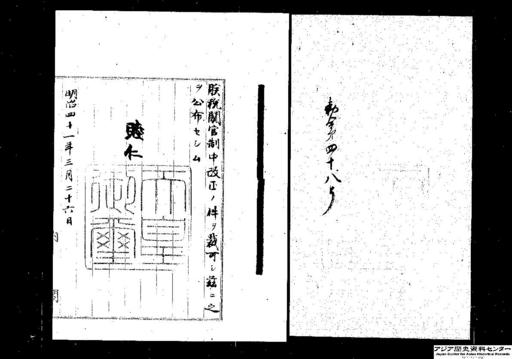 勅令第四十八号
朕税関官制中改正ノ件ヲ裁可シ茲ニ之
ヲ公布セシム
睦仁
天皇
御璽
明治四十一年三月二十六日
内閣
アジア歴史資料センター
Japan Center for Asian Historical Records